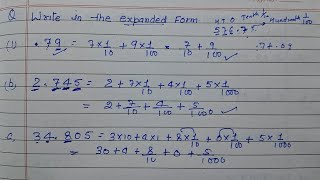 Q Write in the expanded Form
H T O Tenth 1/10 Hundredth 1/100
526.75
(i) .79 = 7×1/10 + 9×1/100 = 7/10 + 9/100 .7+.09
(b) 2.745 = 2 + 7×1/10 + 4×1/100 + 5×1/1000
= 2 + 7/10 + 4/100 + 5/1000
c, 34.805 = 3×10 + 4×1 + 8×1/10 + 0×1/100 + 5×1/1000
= 30 + 4 + 8/10 + 0 + 5/1000